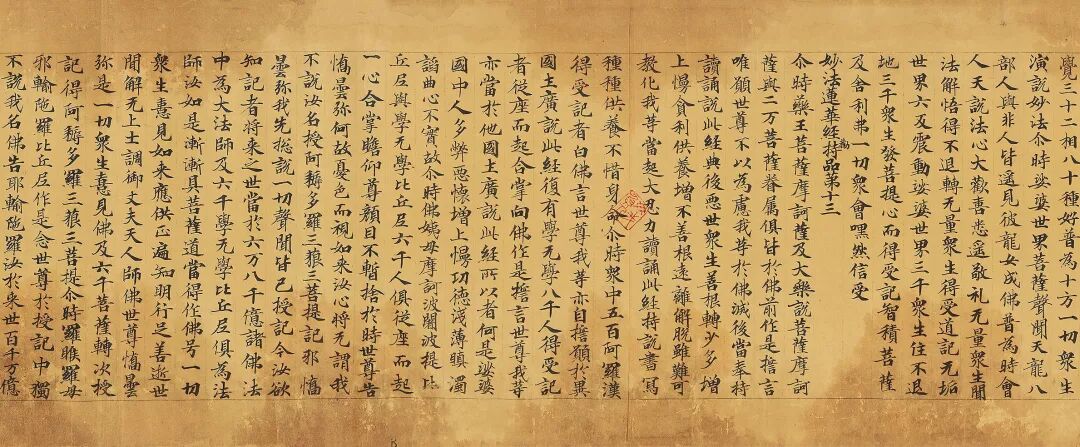 覺三十二相八十種好普為十方一切衆生
演說妙法尒時娑婆世界菩薩聲聞天龍八
部人與非人皆遥見彼龍女成佛普為時會
人天說法心大歡喜悉遥敬礼无量衆生聞
法解悟得不退轉无量衆生得受道記无垢
世界六反震動娑婆世界三千衆生住不退
地三千衆生發菩提心而得受記智積菩薩
及舍利弗一切衆會嘿然信受
妙法蓮華經勸持品第十三
尒時藥王菩薩摩訶薩及大樂說菩薩摩訶
薩與二万菩薩眷属俱皆於佛前作是誓言
唯願世尊不以為慮我䒭於佛滅後當奉持
讀誦說此經典後悪世衆生善根轉少多增
上慢貪利供養增不善根遠離解脫雖難可
教化我䒭當起大忍力讀誦此經持說書寫
種種供養不惜身命尒時衆中五百阿羅漢
得受記者白佛言世尊我䒭亦自誓願於異
國土廣說此經復有學无學八千人得受記
者從座而起合掌向佛作是誓言世尊我䒭
亦當於他國土廣說此經所以者何是娑婆
國中人多弊悪懷增上慢功德淺薄瞋濁
諂曲心不實故尒時佛姨母摩訶波闍波提比
丘尼與學无學比丘尼六千人俱從座而起
一心合掌瞻仰尊顏目不暫捨於時世尊告
憍曇弥何故憂色而視如来汝心將无謂我
不說汝名授阿耨多羅三藐三菩提記耶憍
曇弥我先惣說一切聲聞皆已授記今汝欲
知記者將来之世當於六万八千億諸佛法
中為大法師及六千學无學比丘尼俱為法
師汝如是漸漸具菩薩道當得作佛号一切
衆生憙見如来應供正遍知明行足善逝世
間解无上士調御丈夫天人師佛世尊憍曇
弥是一切衆生憙見佛及六千菩薩轉次授
記得阿耨多羅三藐三菩提尒時羅睺羅母
耶輸陁羅比丘尼作是念世尊於授記中獨
不說我名佛告耶輸陁羅汝於来世百千万億